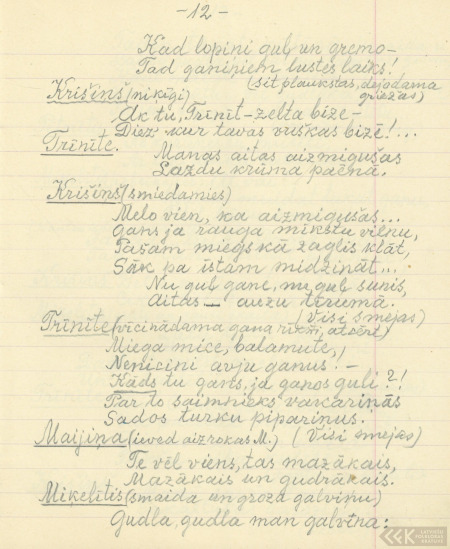 -12-
Kad lopiņi guļ un gremo-
Tad ganiņiem lustes laiks!
(sit plaukstas, dejodama
griežas)
Krišiņš (niķīgi)
Ak tu, Trīnīt-zelta bize-
Diez kur tavas vuškas bizē!...
Trīnīte.
Manas aitas aizmigušas
Lazdu krūma paēnā.
Krišiņš (smiedamies)
Melo vien, ka aizmigušas...
Gans ja rauga mīkstu vilnu,
Pašam miegs kā zaglis klāt,
Sāk pa īstam midzināt...
Nu guļ gans, nu guļ sunis,
Aitas - auzu tīrumā.
(Visi smejas)
Trīnīte (vīcinādama gana rīksti, atcērt)
Miega mice, balamute,
Nenicini avju ganus! -
Kāds tu gans, ja ganos guli?!
Par to saimnieks vakariņās
Sados turku pipariņus.
Maijiņa (ieved aizrokas M.) (Visi smejas)
Te vēl viens, tas mazākais,
Mazākais un gudrākais.
Miķelītis (smaida un groza galviņu)
Gudla, gudla man galvīna:
LATVIEŠU FOLKLORAS KRĀTUVE